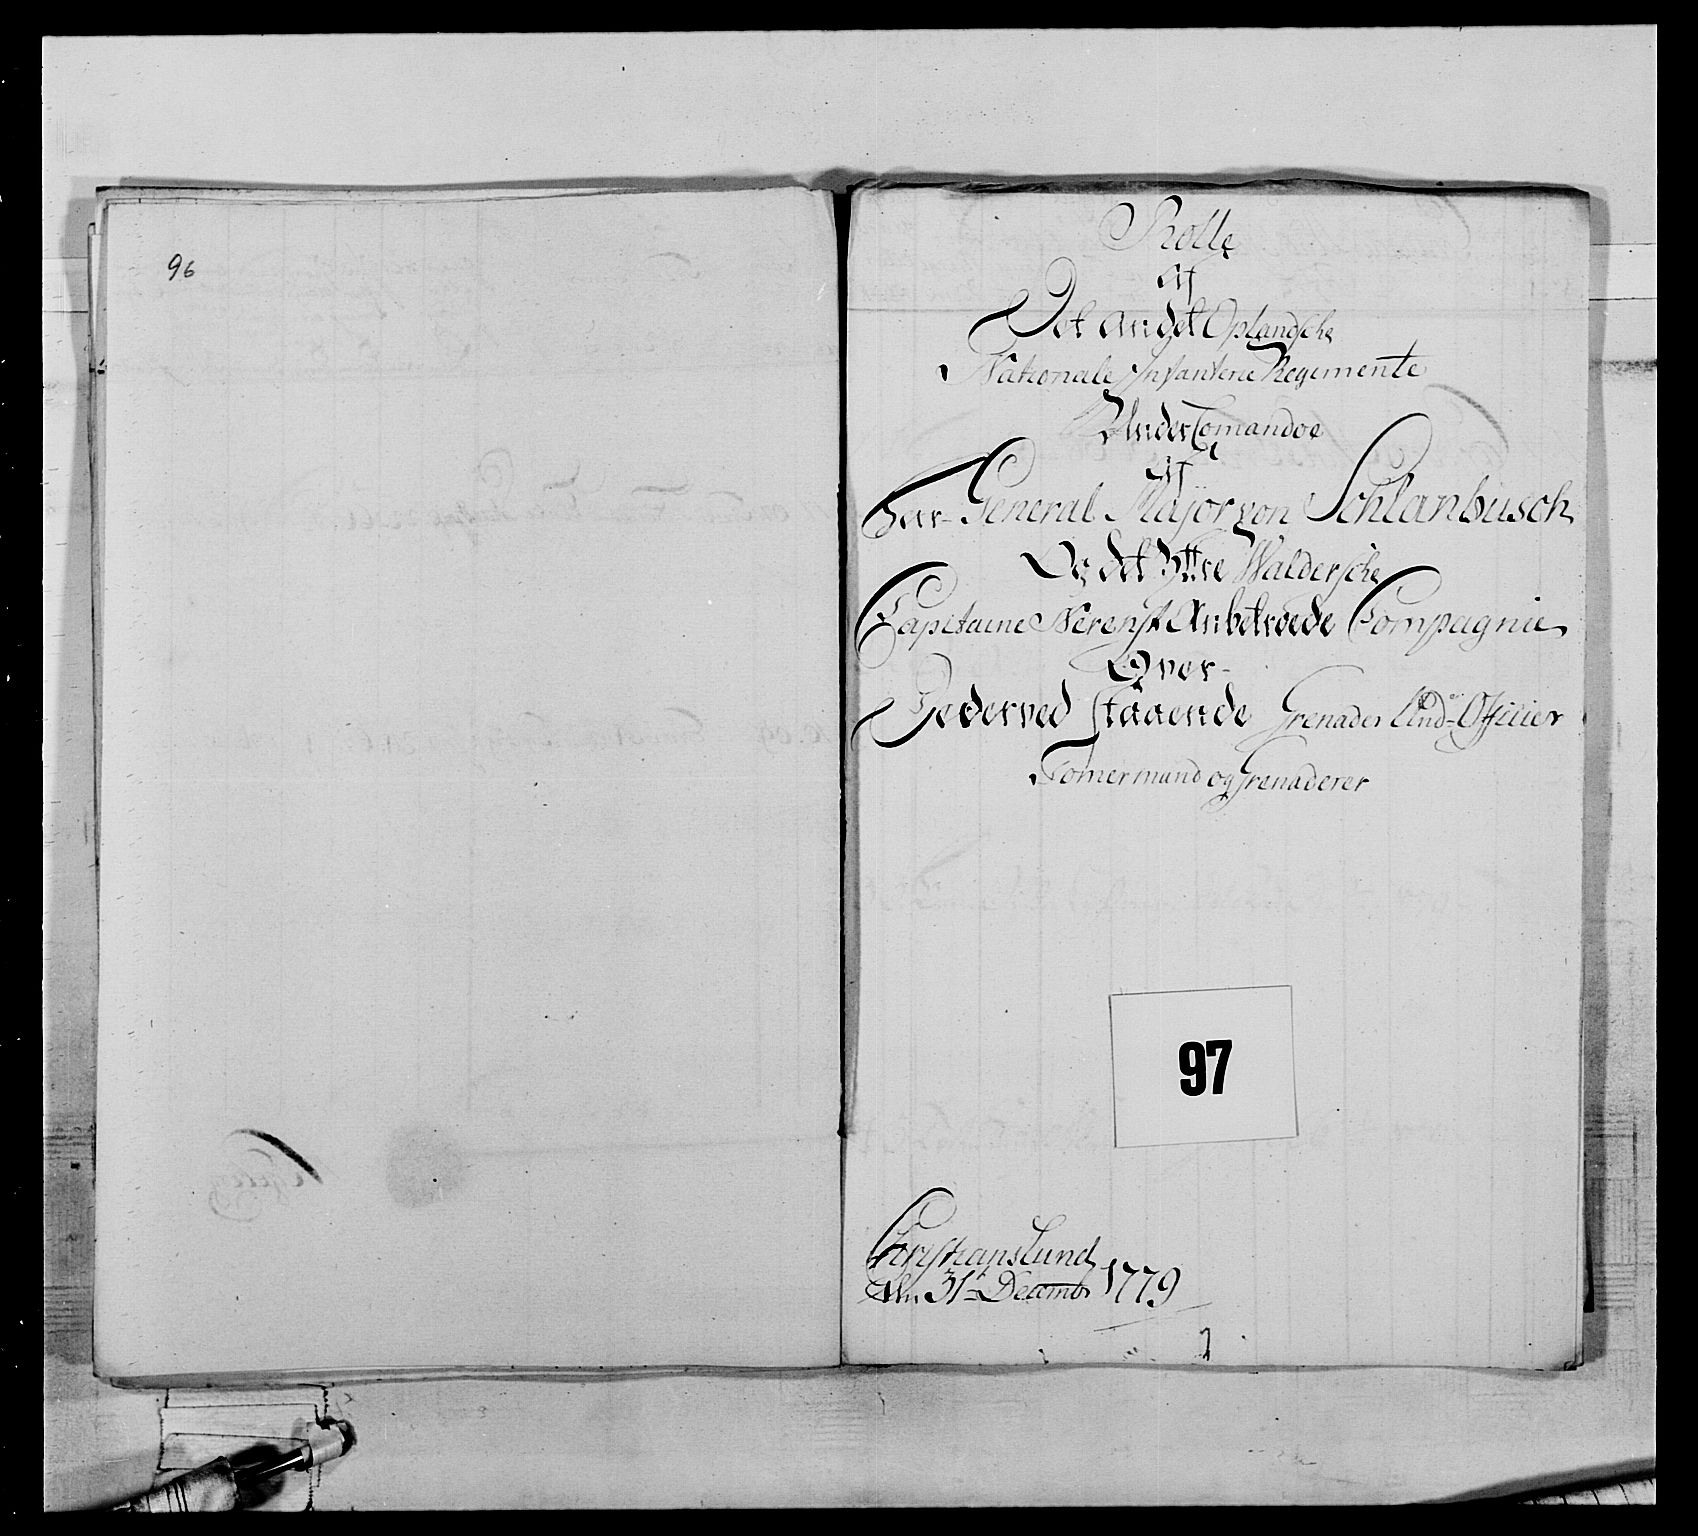 96
Rolle
Af
Det andet Oplandsche
Nationale Infanterie Regimente
Under Comandoe
Af
Herr General Major von Schlanbusch
Og det yttre Waldersche
Capitaine Nerenst Anbetroede Compagnie
Over
Dederved staaende Grenader Und: Officier
Tomermand og Grenaderer
97
Christianslund
den 31t Decembr 1779